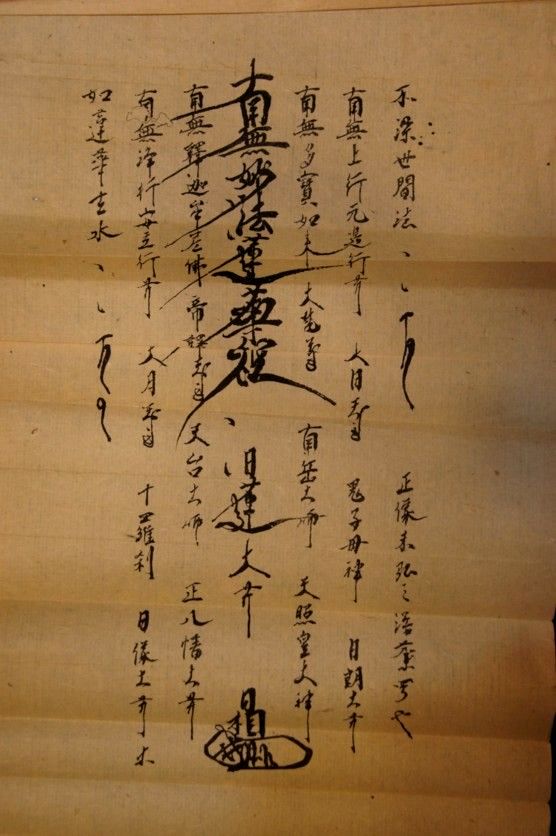 不染世間法
正像未弘之
南無上行无邊行菩 大日天 鬼子母神 日朗大菩
南無多寶如来 大梵 南岳大師 天照皇大神
南無妙法蓮華經 日蓮大菩
南無釋迦牟尼佛 帝釋 天台大師 正八幡大菩
南無浄行安立行菩 大月天 十羅刹 日像大菩
如蓮華在水